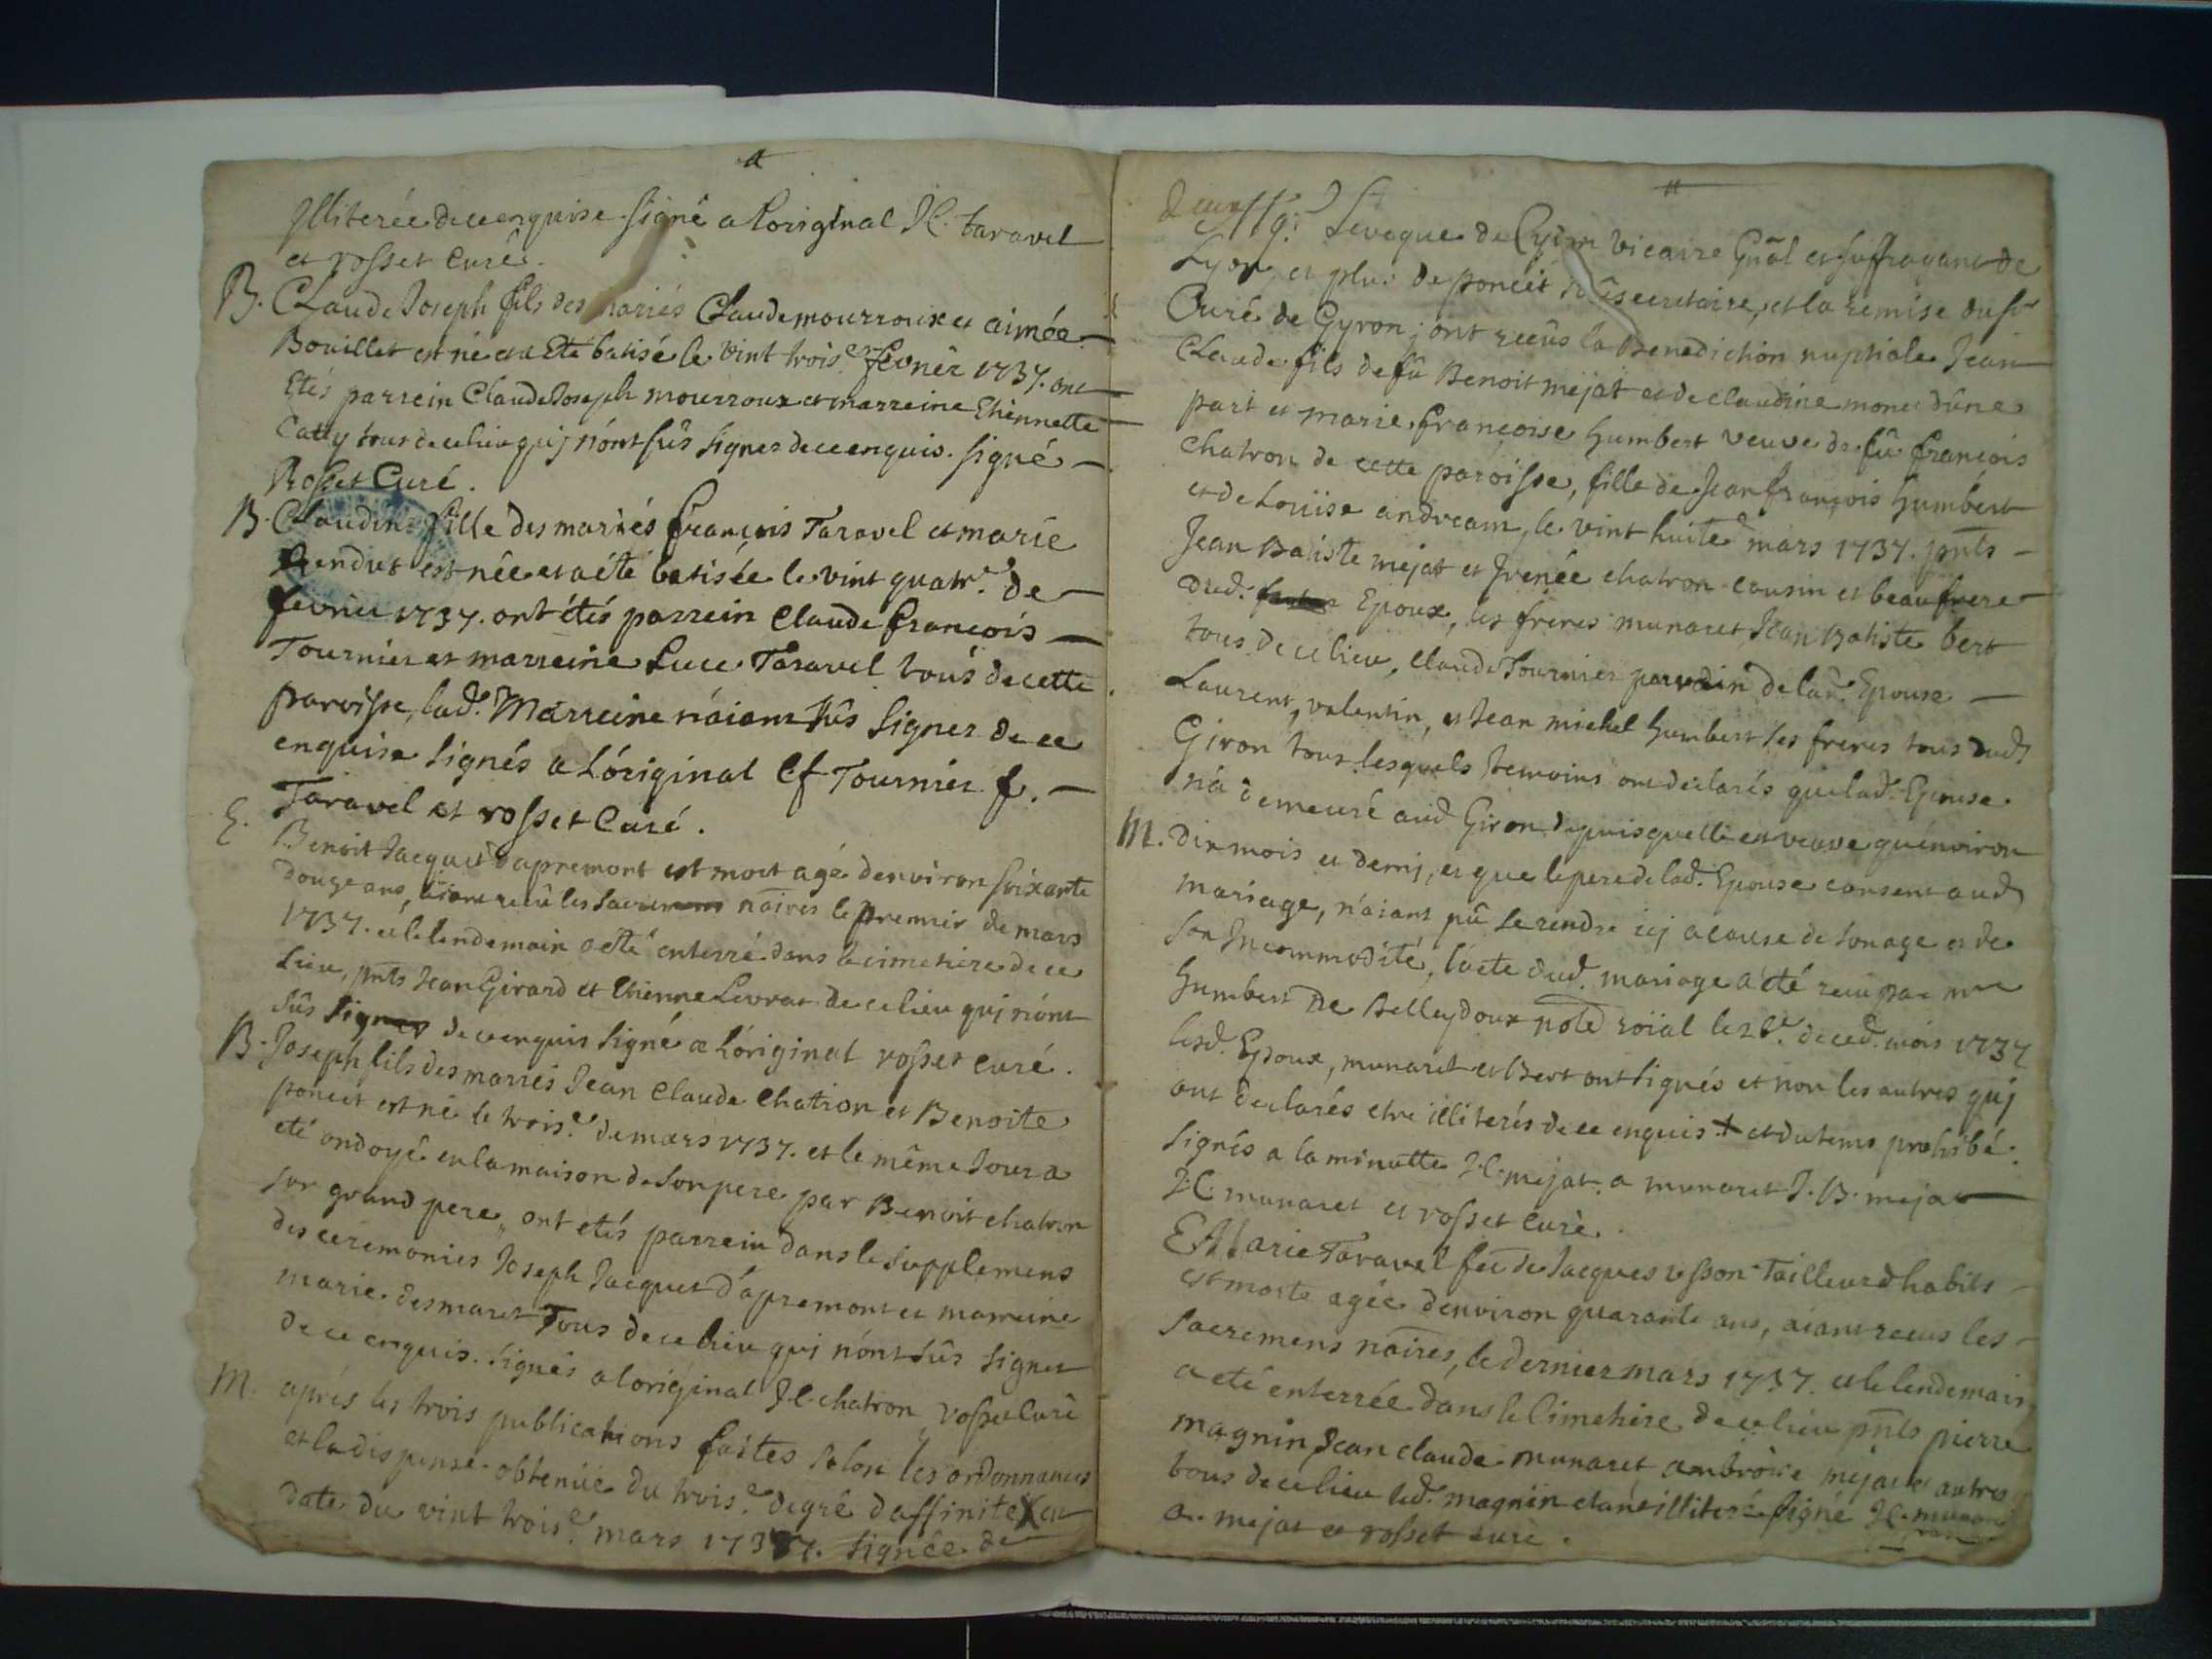 illiterée de ce enquise. signé a l'original J C. taravel
et rosset Curé.
B. Claude Joseph fils des mariés Claude mourroux et aimée
Bouillet est né et a eté batisé le vint trois.e fevrier 1737. ont
etés parrein Claude Joseph mourroux et marreine Etiennette
Catty tous de ce lieu qui n'ont sûs signer de ce enquis. signé
Rosset Curé.
B. Claudine fille des mariés françois Taravel et marie
est née et a été batisée le vint quatr.e de
fevrier 1737. ont étés parrein Claude françois
Tournier et marreine Luce Taravel tous de cette
paroisse, lad.e Marreine n'aiant sûs signer de ce
enquise signés a l'original Cf Tournier f.
Taravel et rosset Curé.
E. Benoit Jacquet d'apremont est mort agé d'environ soixante
douze ans, aiant recû les sacremens nāires le premier de mars
1737. et le lendemain a été enterré dans le cimetiere de ce
lieu, pnts Jean Girard et Etienne Levrat de ce lieu qui n'ont
sûs signer de ce enquis signé a l'original rosset curé.
B. Joseph fils des mariés Jean Claude Chatron et Benoite
poncet est né le trois.e de mars 1737. et le même jour a
eté ondoyé en la maison de son pere par Benoit chatron
son grand pere, ont etés parrein dans le supplemens
des ceremonies Joseph Jacquet d'apremont et marreine
marie desmaret Tous de ce lieu qui n'ont sûs signer
de ce enquis. signés a l'original J C. chatron rosset Curé
M. aprés les trois publications faites selon les ordonnances
et la dispense obtenüe du trois.e degré d'affinité X en
date du vint trois.e mars 1737. signée de
Leveque de vicaire Gnāl et suffragant de
Lyon, et plus de poncet secretaire, et la remise du sr
Curé de Gyron; ont recûs la Benediction nuptiale Jean
Claude fils de fû Benoit mejat et de claudine monet d'une
part et marie françoise humbert veuve de fû françois
Chatron de cette paroisse, fille de Jean françois humbert
et de Loüise andream, le vint huite mars 1737. pnts
Jean Batiste mejat et Irenée chatron cousin et beaufrere
dud. Epoux, les freres munaret, Jean Batiste bert
tous de ce lieu, Claude Tournier parrein de lad.e Epouse
Laurent, valentin, et Jean michel humbert ses freres tous dud
Giron tous lesquels temoins ont declarés que lad.e Epouse
n'a demeuré aud Giron depuis qu'elle est veuve qu'environ
M. dix mois et demj, et que le pere de lad.e Epouse consent aud
mariage, n'aiant pû se rendre icj a cause de son age et de
son Incommodité, l'acte dud. mariage a été recu par me
humbert de Belleydoux not.e roïal le de ced. mois 1737
lesd. Epoux, munaret et Bert ont signés et non les autres qui
ont declarés etre illiterés de ce enquis + et du tems prohibé.
signés a la minutte J.C. mejat. a munaret J. B. mejat
J.C. munaret et rosset curé.
E Marie Taravel fēe de Jacques vesson Tailleur d'habits
est morte agée d'environ quarante ans, aiant recus les
sacremens nāires, le dernier mars 1737. et le lendemain
a eté enterrée dans le Cimetiere de ce lieu pnts pierre
magnin Jean claude munaret ambroise mejat et autres
tous de ce lieu led. magnin etant illiteré signé J C. munaret
a. mejat et rosset curé.